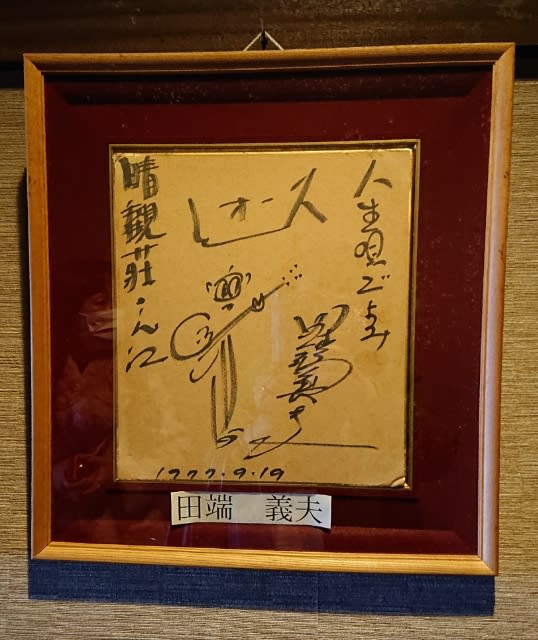 人生唄ごよみ
オース
田端義夫
晴観荘さん江
1977.9.19
田端 義夫